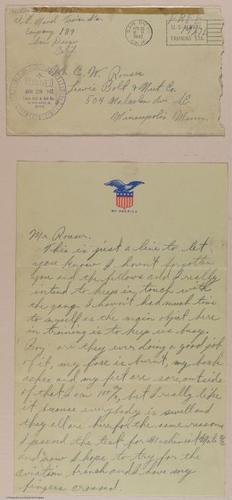 U.S. Naval Training Sta.
Company 189
San Diego
Calif.
Mr. C. W. Rouser
Lewis Bolt & Nut Co.
504 Malcolm Ave SE
Minneapolis Minn.
MY AMERICA
Mr. Rouser,
This is just a line to let
you know I haven't forgotten
you and the fellows and I really
intend to keep in touch with
the gang. I haven't had much time
to myself as the main object here
in training is to keep us busy.
Boy are they ever doing a good job
of it, my nose is burnt, my back
aches and my feet are sore outside
of that I am 100%, but I really like
it because everybody is swell and
they all are here for the same reasons
I passed the test for Machinist Mate
and now I hope to try for the
aviation branch and I have my
fingers crossed.